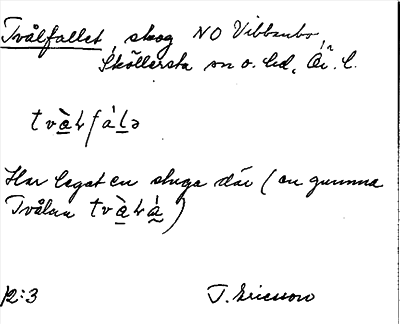 Tvålfallet, skog NO Vibbenbo,
Sköllersta sn o. hd, Ör. l.
Har legat en stuga där (en gumma
Tvålan
12:3
T. Ericsson